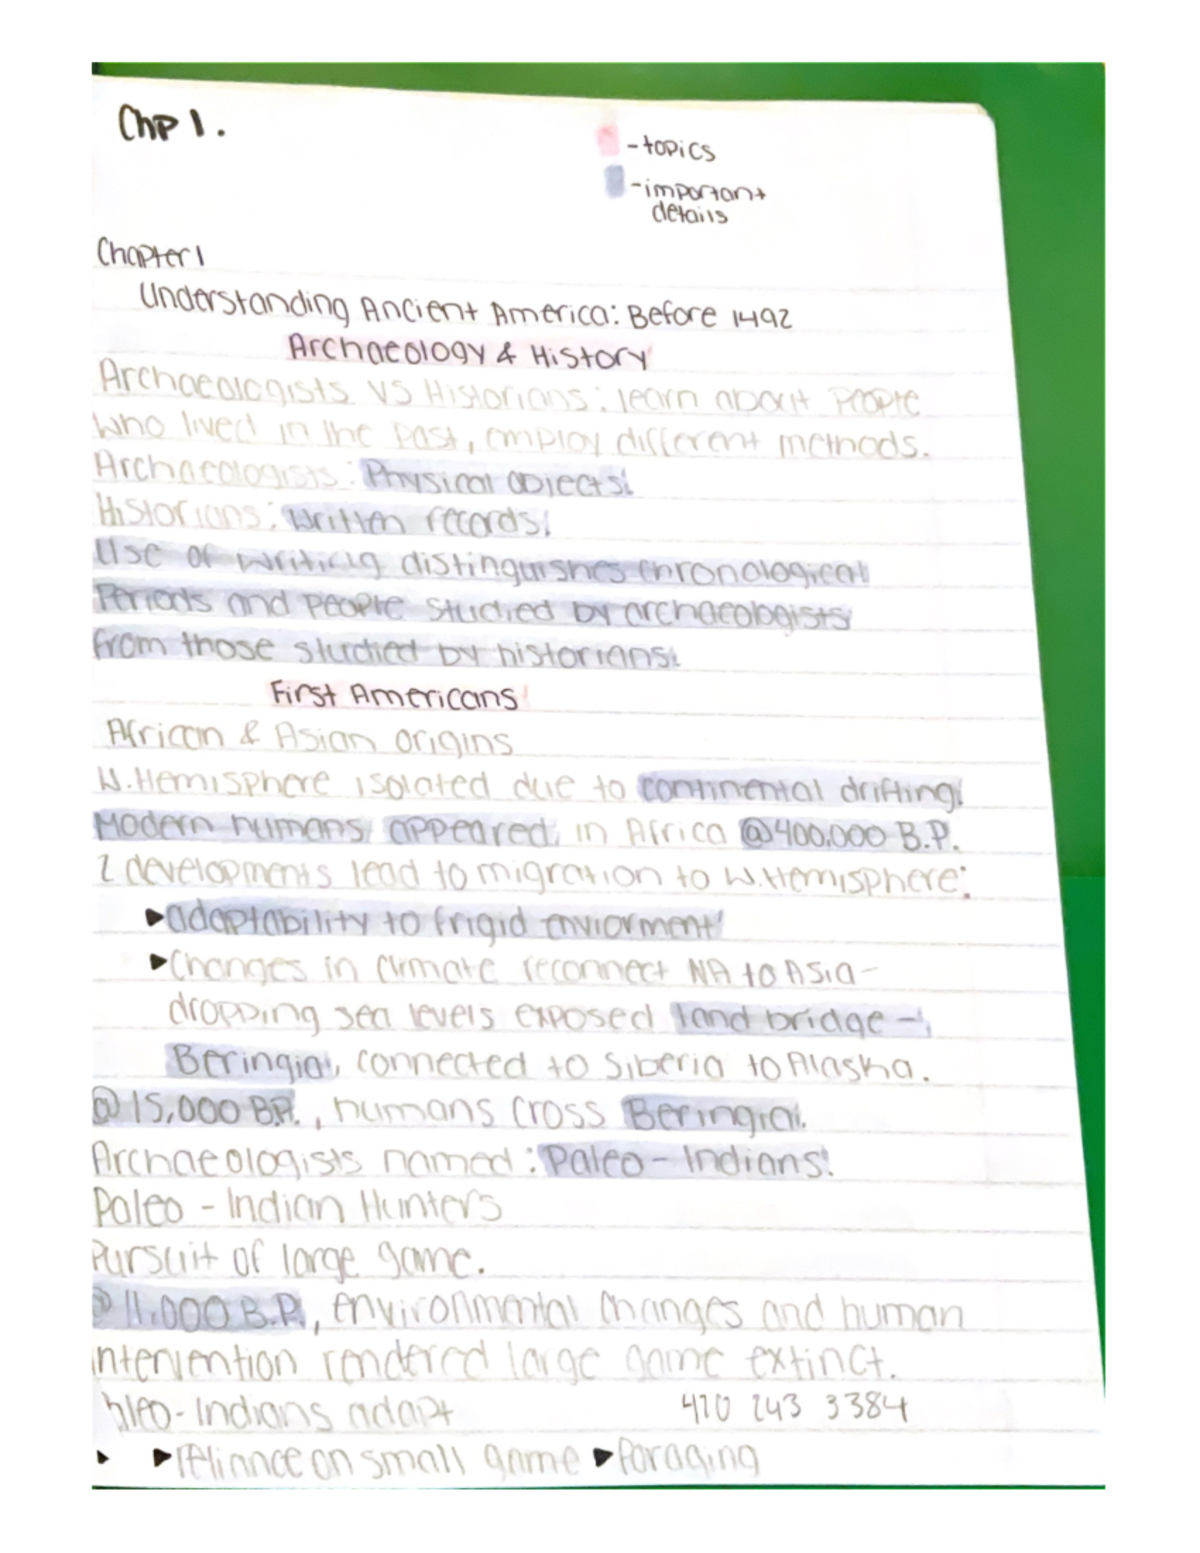 Chp 1.
- topics
- important
details
Chapter 1
Understanding Ancient America: Before 1492
Archaeology & History
Archaeologists VS Historians: learn about people
who lived in the past, employ different methods.
Archaeologists: Physical objects.
Historians: written records.
Use of writing distinguishes chronological
Periods and people studied by archaeologists
from those studied by historians.
First Americans
African & Asian origins
W. Hemisphere isolated due to continental drifting.
Modern humans appeared in Africa @400,000 B.P.
2 developments lead to migration to W. Hemisphere:
▶adaptability to frigid enviorment
▶Changes in climate reconnect NA to Asia-
dropping sea levels exposed land bridge -
Beringia, connected to Siberia to Alaska.
@15,000 B.P., humans cross Beringia.
Archaeologists named: Paleo-Indians.
Paleo-Indian Hunters
Pursuit of large game.
@11,000 B.P., environmental changes and human
intervention rendered large game extinct.
Paleo-Indians adapt 410 243 3384
▶ ▶reliance on small game ▶foraging